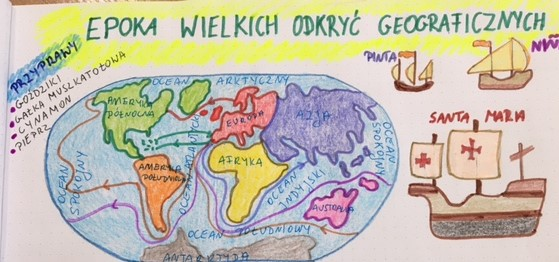 EPOKA WIELKICH ODKRYĆ GEOGRAFICZNYCH
PRZYPRAWY
GOŹDZIKI
GAŁKA MUSZKATOŁOWA
CYNAMON
PIEPRZ
OCEAN ARKTYCZNY
AMERYKA PÓŁNOCNA
EUROPA
AZJA
OCEAN SPOKOJNY
OCEAN ATLANTYCKI
AFRYKA
AMERYKA POŁUDNIOWA
OCEAN SPOKOJNY
OCEAN INDYJSKI
AUSTRALIA
OCEAN POŁUDNIOWY
ANTARKTYDA
PINTA
SANTA MARIA